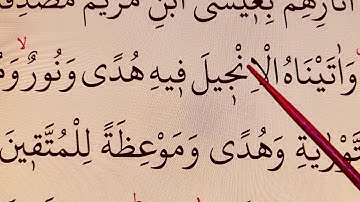 اٰثَارِهِمْ بِعٖيسَى ابْنِ مَرْيَمَ مُصَدِّقًا
وَاٰتَيْنَاهُ الْاِنْجٖيلَ فٖيهِ هُدًى وَنُورٌ
التَّوْرٰيةِ وَهُدًى وَمَوْعِظَةً لِلْمُتَّقٖينَ